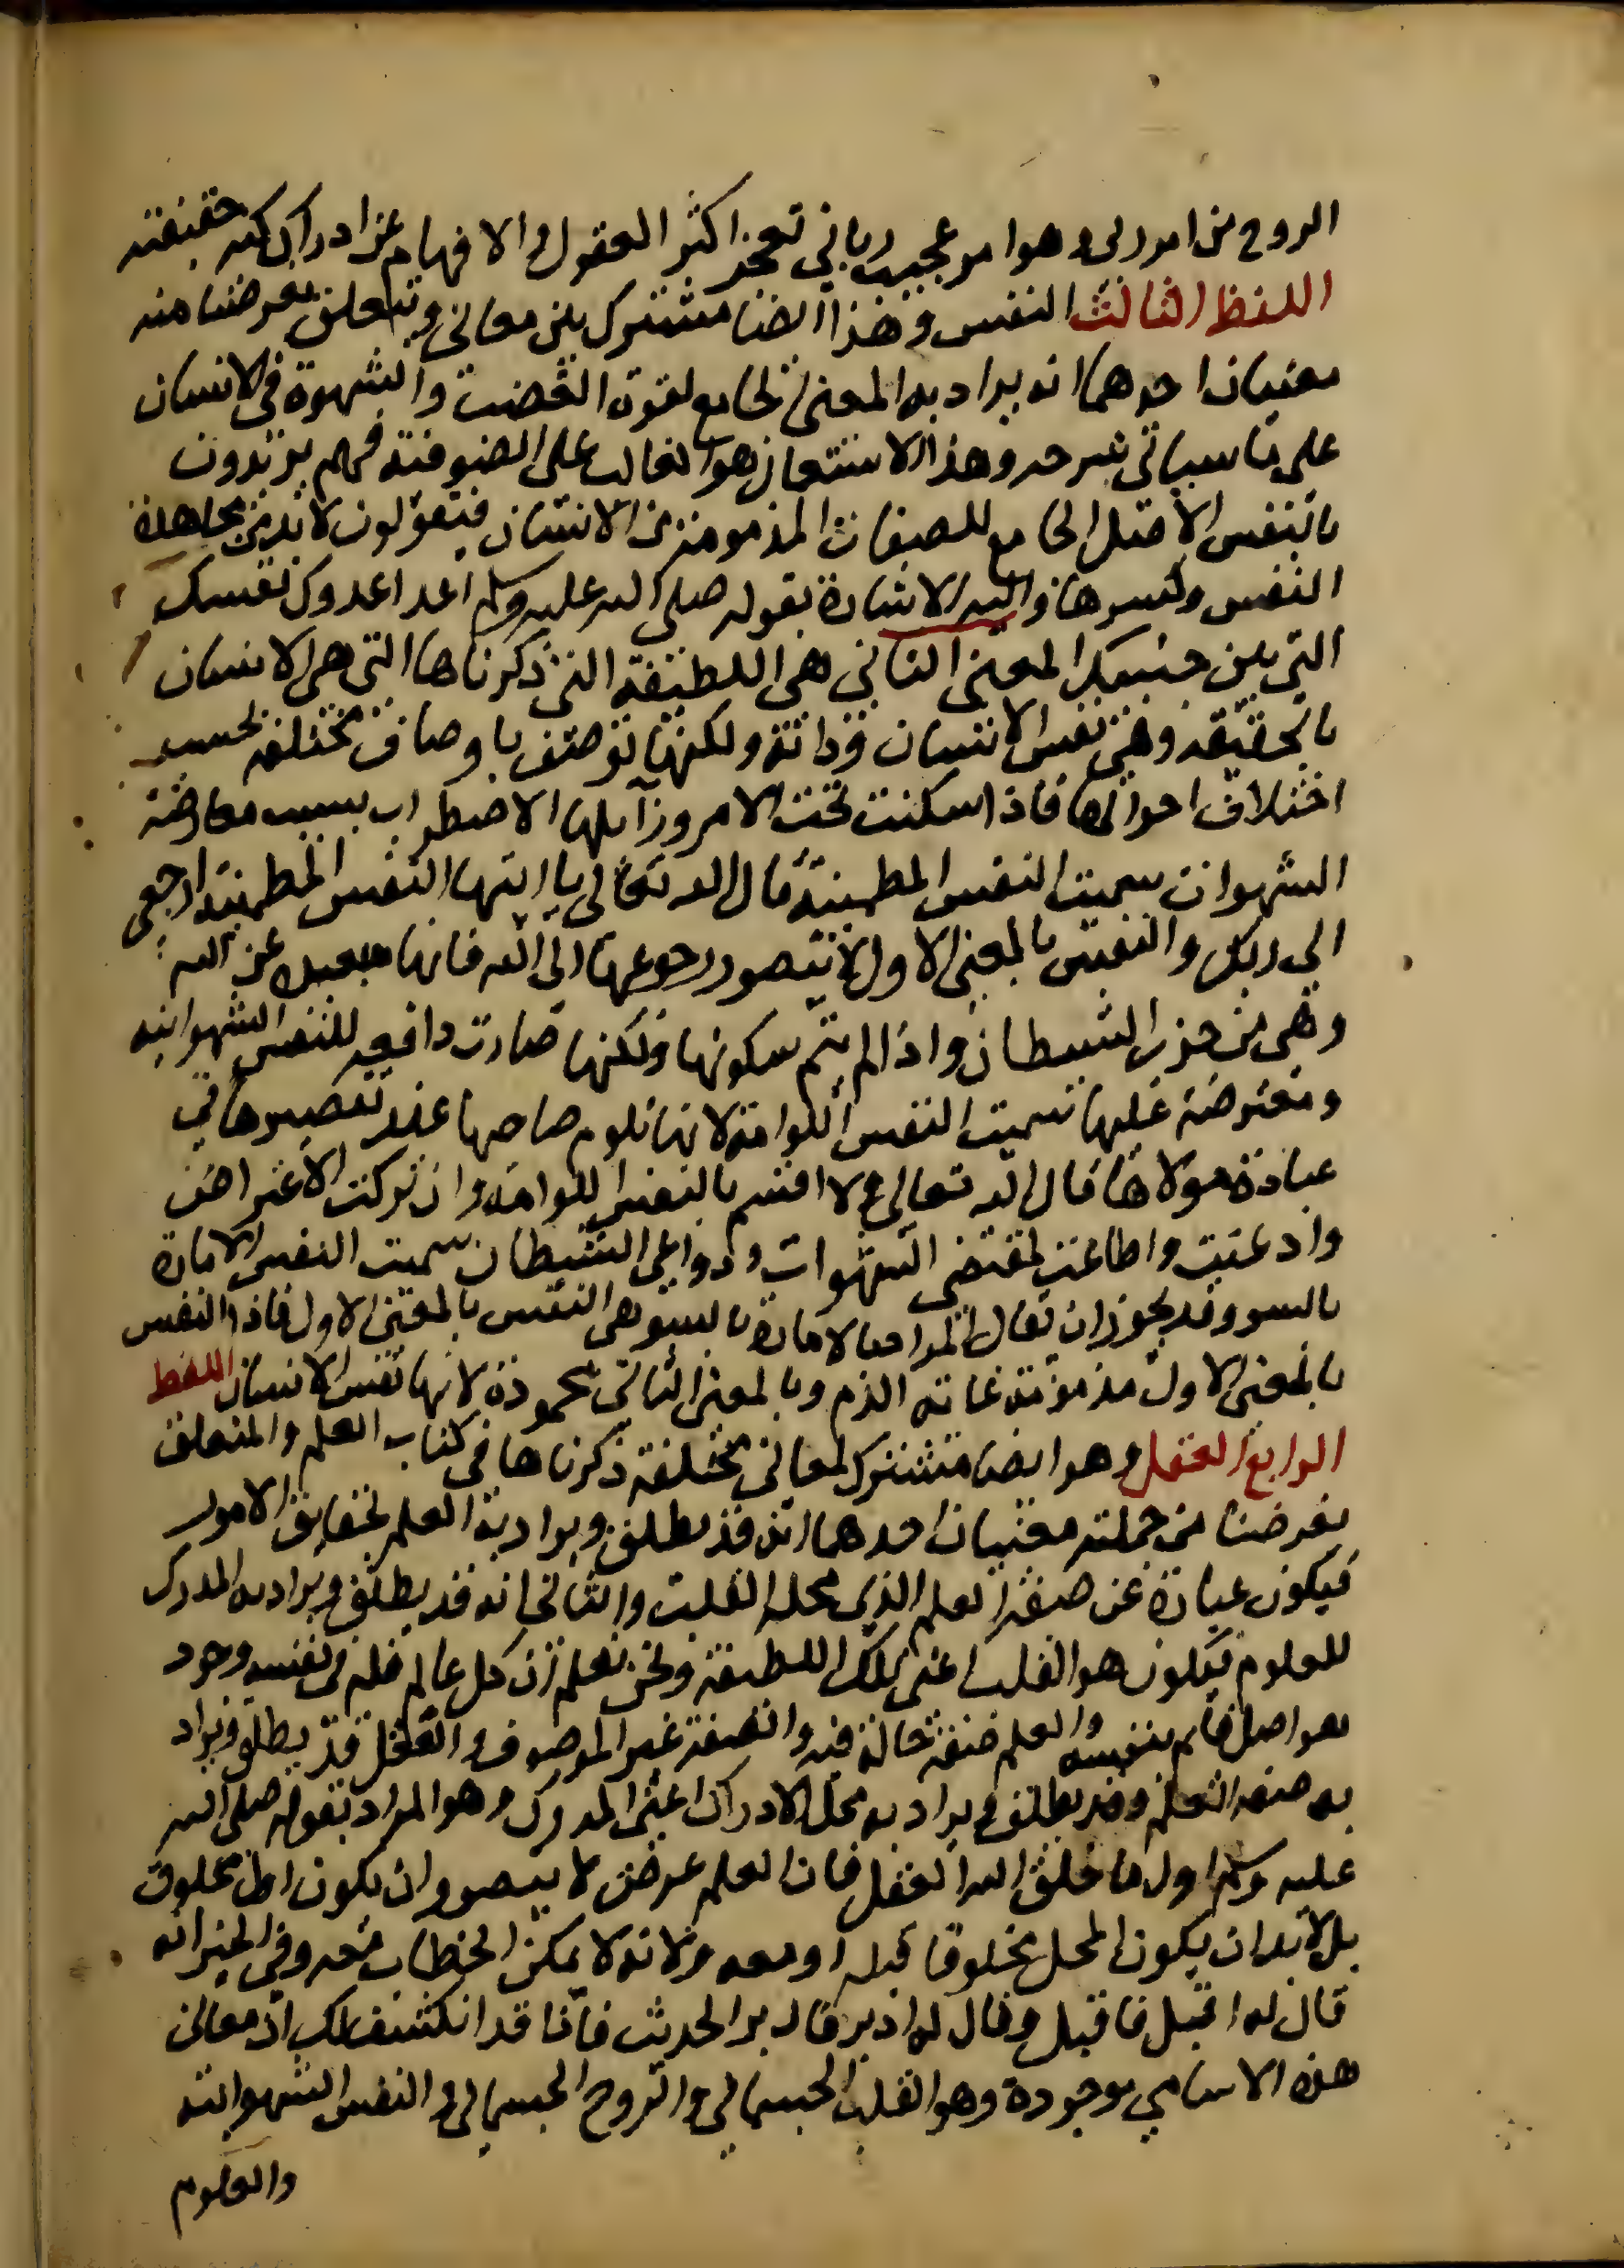 الروح من امر ربي وهو امر عجيب رباني تعجز اكثر العقول والافهام عن ادراك كنه حقيقته
اللفظ الثالث النفس وهذا ايضا مشترك بين معاني ويتعلق بغرضنا منه
معنيان احدهما انه يراد به المعنى الجامع لقوة الغضب والشهوة في الانسان
على ما سياتي شرحه وهذا الاستعمال هو الغالب على الصوفية فهم يريدون
بالنفس الاصل الجامع للصفات المذمومة من الانسان فيقولون لا بد من مجاهدة
النفس وكسرها واليه الاشارة بقوله صلى الله عليه وسلم اعدا عدوك نفسك
التي بين جنبيك المعنى الثاني هي اللطيفة التي ذكرناها التي هي الانسان
بالحقيقة وهي نفس الانسان وذاته ولكنها توصف باوصاف مختلفة بحسب
اختلاف احوالها فاذا سكنت تحت الامر وزايلها الاضطراب بسبب معارضة
الشهوات سميت النفس المطمينة قال الله تعالى يا ايتها النفس المطمينة ارجعي
الي ربك والنفس بالمعنى الاول لا يتصور رجوعها الى الله فانها مبعدة عن الله
وهي من حزب الشيطان واذا لم يتم سكونها ولكنها صارت دافعة للنفس الشهوانيه
ومعترضة عليها سميت النفس اللوامة لانها تلوم صاحبها عند تقصيرها في
عبادة مولاها قال الله تعالى ولا اقسم بالنفس اللوامة وان تركت الاعتراض
واذعنت واطاعت لمقتضى الشهوات ودواعي الشيطان سميت النفس الامارة
بالسو وقد يجوز ان يقال المراد بالامارة بالسو هي النفس بالمعنى الاول فاذا النفس
بالمعنى الاول مذمومة غاية الذم وبالمعنى الثاني محمودة لانها نفس الانسان اللفظ
الرابع العقل وهو ايضا مشترك لمعاني مختلفة ذكرناها في كتاب العلم والمتعلق
بغرضنا من جملته معنيان احدهما انه قد يطلق ويراد به العلم بحقايق الامور
فيكون عبارة عن صفة العلم الذي محله القلب والثاني انه قد يطلق ويراد به المدرك
للعلوم فيكون هو القلب اعني تلك اللطيفة ونحن نعلم ان كل عالم فله في نفسه وجود
هو اصل قايم بنفسه والعلم صفة حالة فيه والصفة غير الموصوف والعقل قد يطلق ويراد
به صفة العلم وقد يطلق ويراد به محل الادراك اعني المدرك وهو المراد بقوله صلى الله
عليه وسلم اول ما خلق الله العقل فان العلم عرض لا يتصور ان يكون اول مخلوق
بل لابد ان يكون المحل مخلوقا قبله او معه ولانه لا يمكن الخطاب معه وفي الخبر انه
قال له اقبل فاقبل وقال له ادبر فادبر الحديث فاذا قد انكشف لك ان معاني
هذه الاسامي موجودة وهو القلب الجسماني والروح الجسماني والنفس الشهوانية
والعلوم